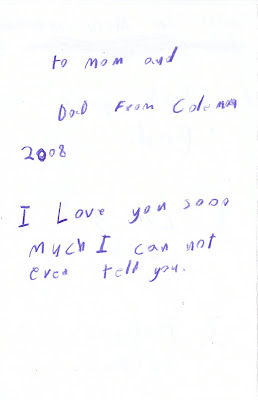 to mom and
Dad From Coleman
2008
I Love you sooo
much I can not
even tell you.